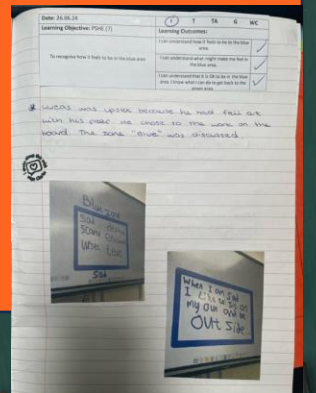 Date: 26.04.24
I T TA G WC
Learning Objective: PSHE (7)
Learning Outcomes:
To recognise how it feels to be in the blue area
I can understand how it feels to be in the blue area.
I can understand what might make me feel in the blue area.
I can understand that it is OK to be in the blue area. I know what I can do to get back to the green area.
was upset because he had fell out
with his peer. He chose to work on the
board. The zone "Blue" was discussed.
Blue Zone
Sad
Sad
When I am Sad
I like to sit on
my own and be
OUt Side